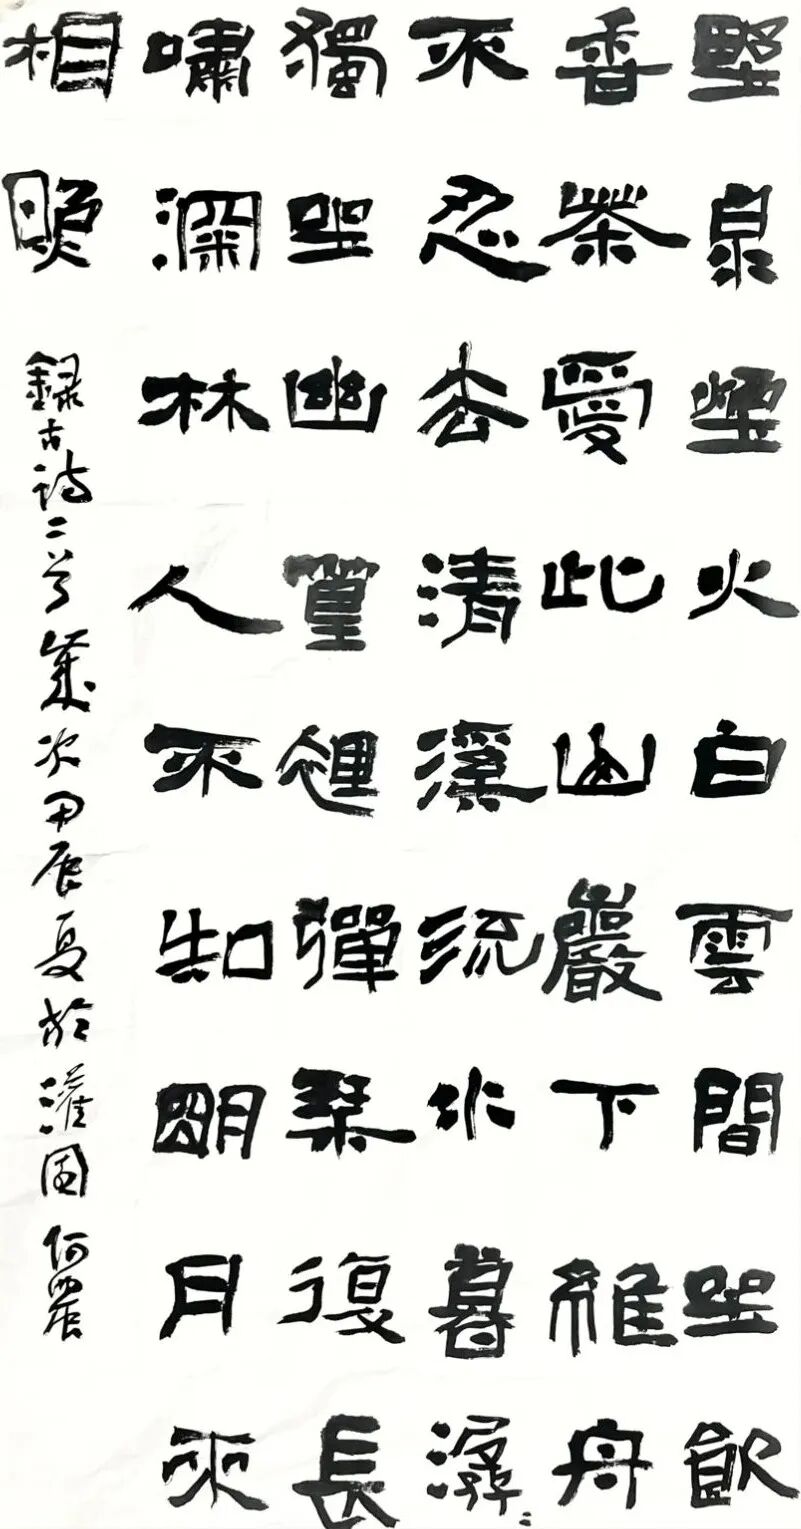 墅泉煙火白雲間坐飲
香茶愛此山巖下維舟
不忍去清溪流水暮潺〻
獨坐幽篁裡彈琴復長
嘯深林人不知明月來
相照
錄古詩二首歲次甲辰夏於灌園何農